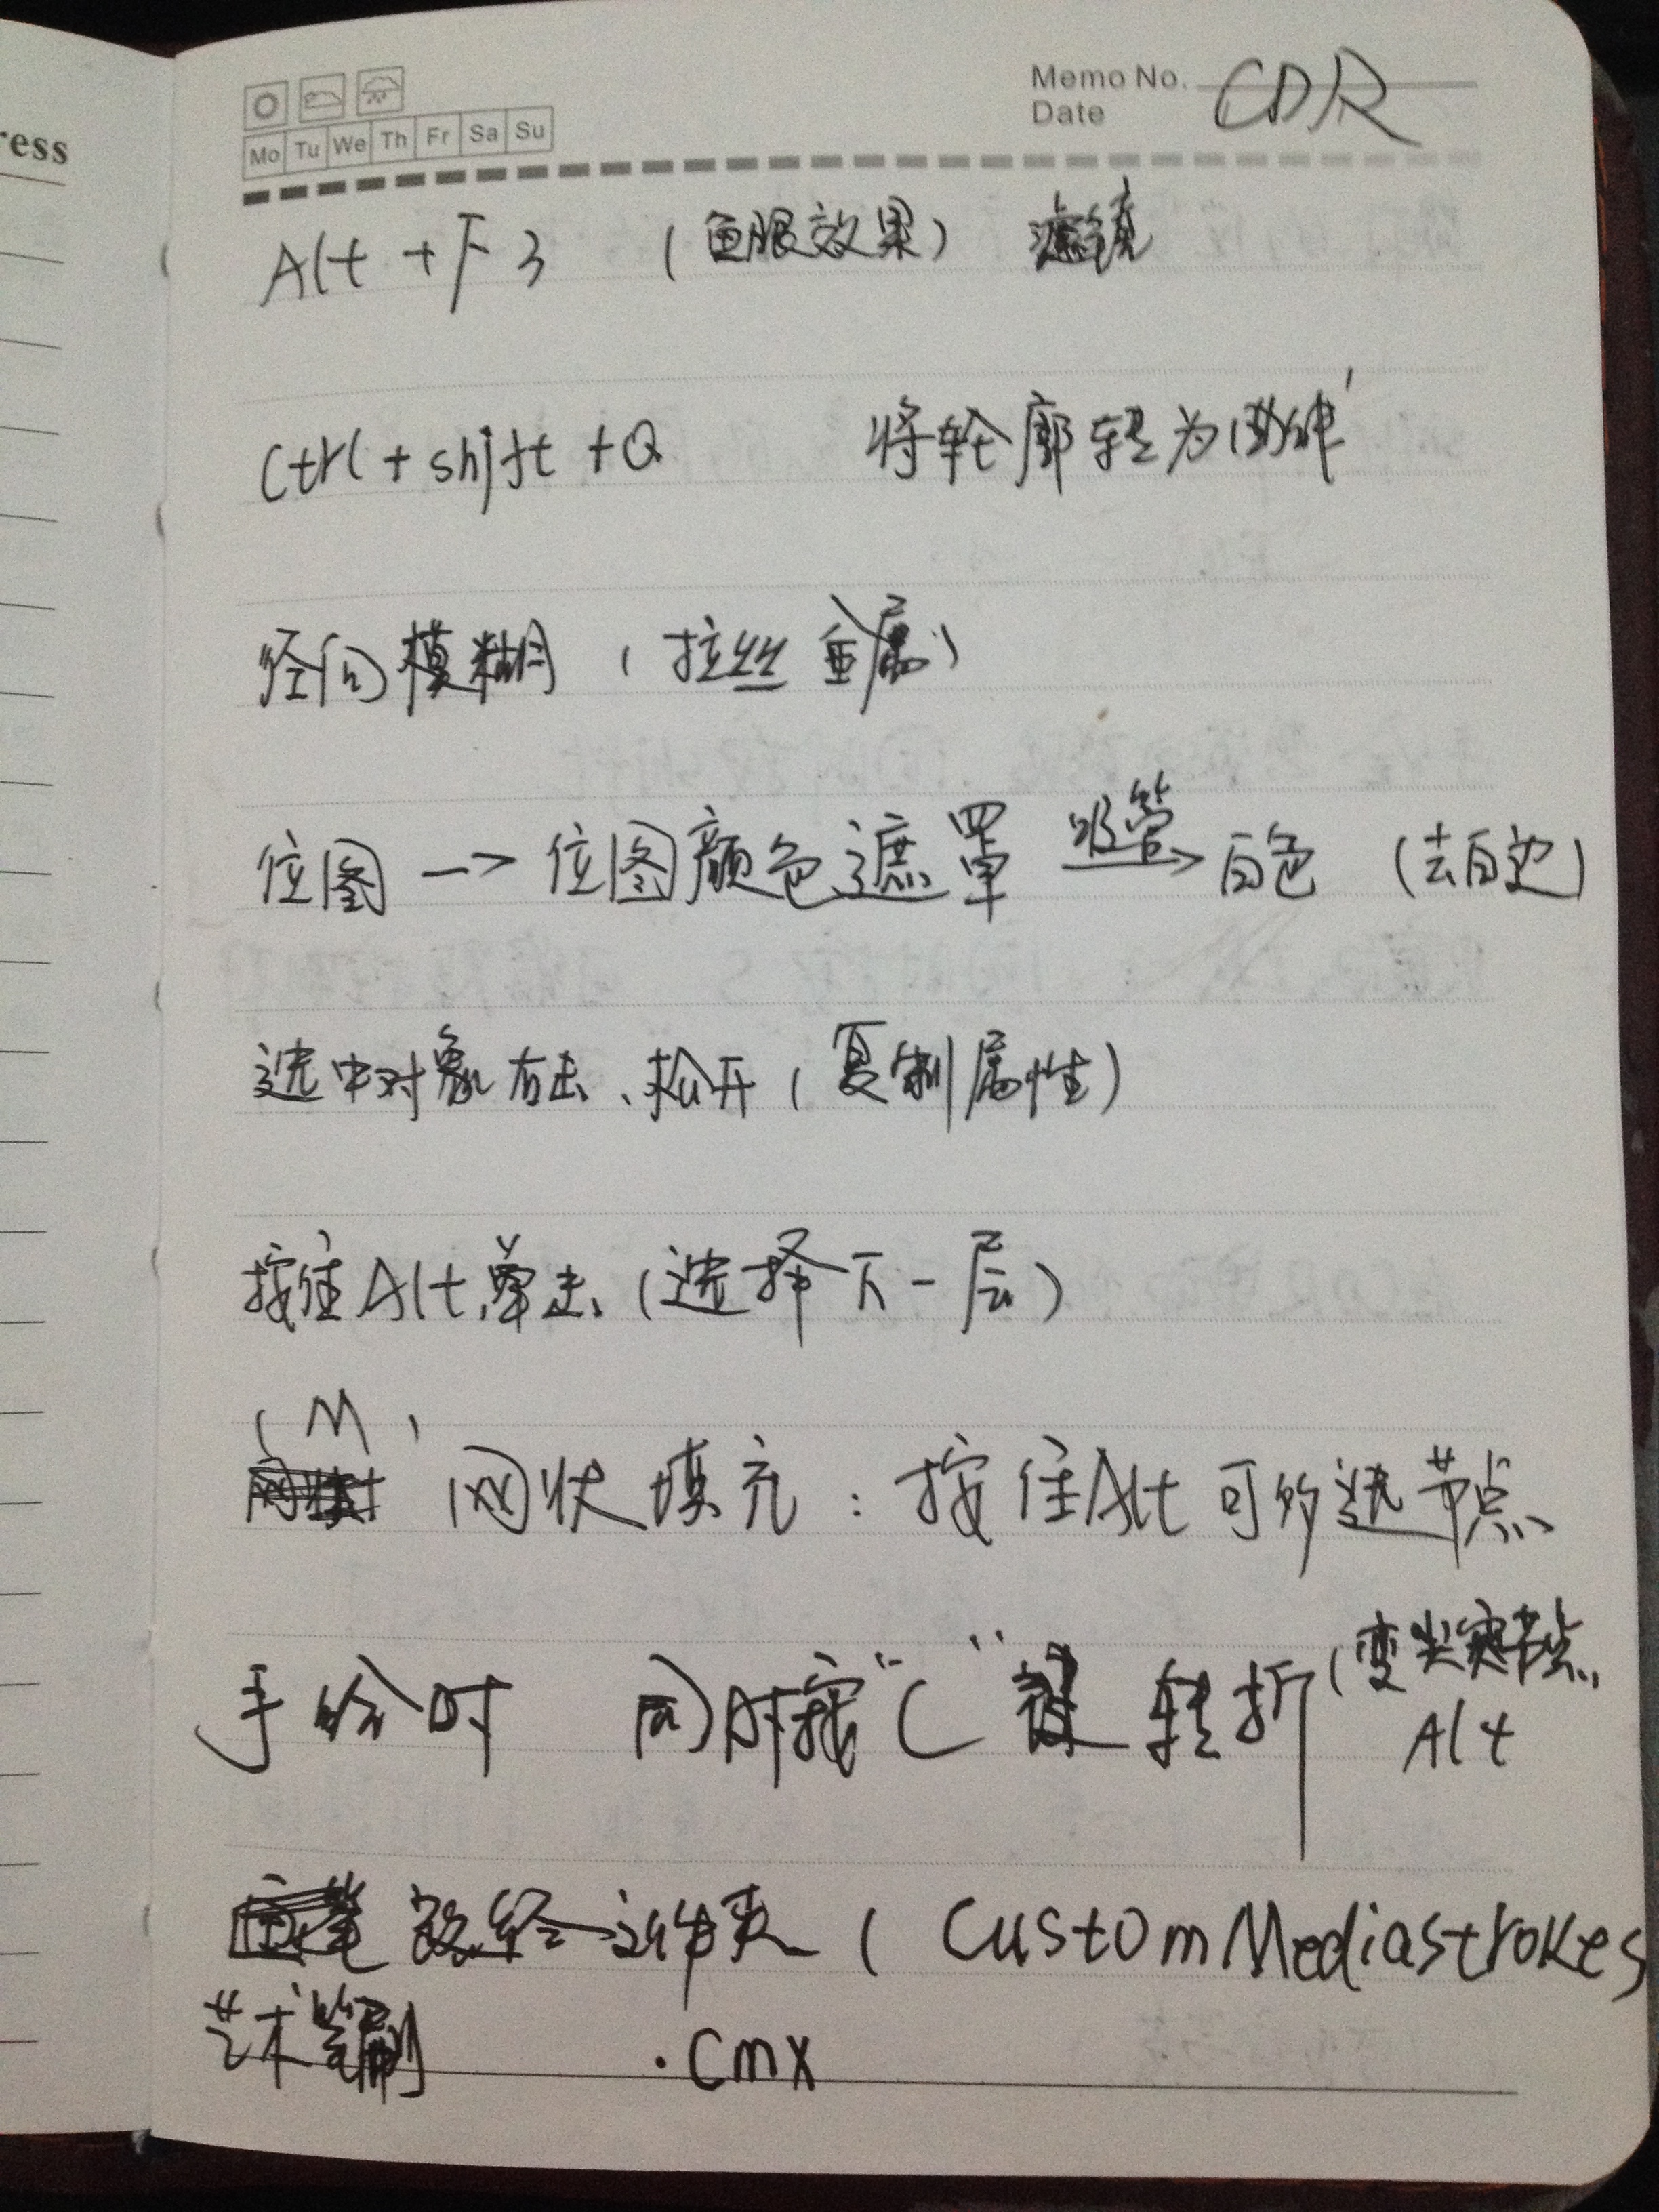 ress
Memo No. CDR
Date
Mo Tu We Th Fr Sa Su
Alt + F3 (鱼眼效果) 滤镜
Ctrl + shift + Q 将轮廓转为
径向模糊 (拉丝金属)
位图 —> 位图颜色遮罩 吸管 白色 (去白边)
选中对象右击、松开 (复制属性)
按住Alt单击 (选择下一层)
(M)
网状填充:按住Alt可多选节点
手绘时 同时按“C” 转折 (变尖突节点
Alt
(CustomMediastrokes
艺术笔刷 .cmx